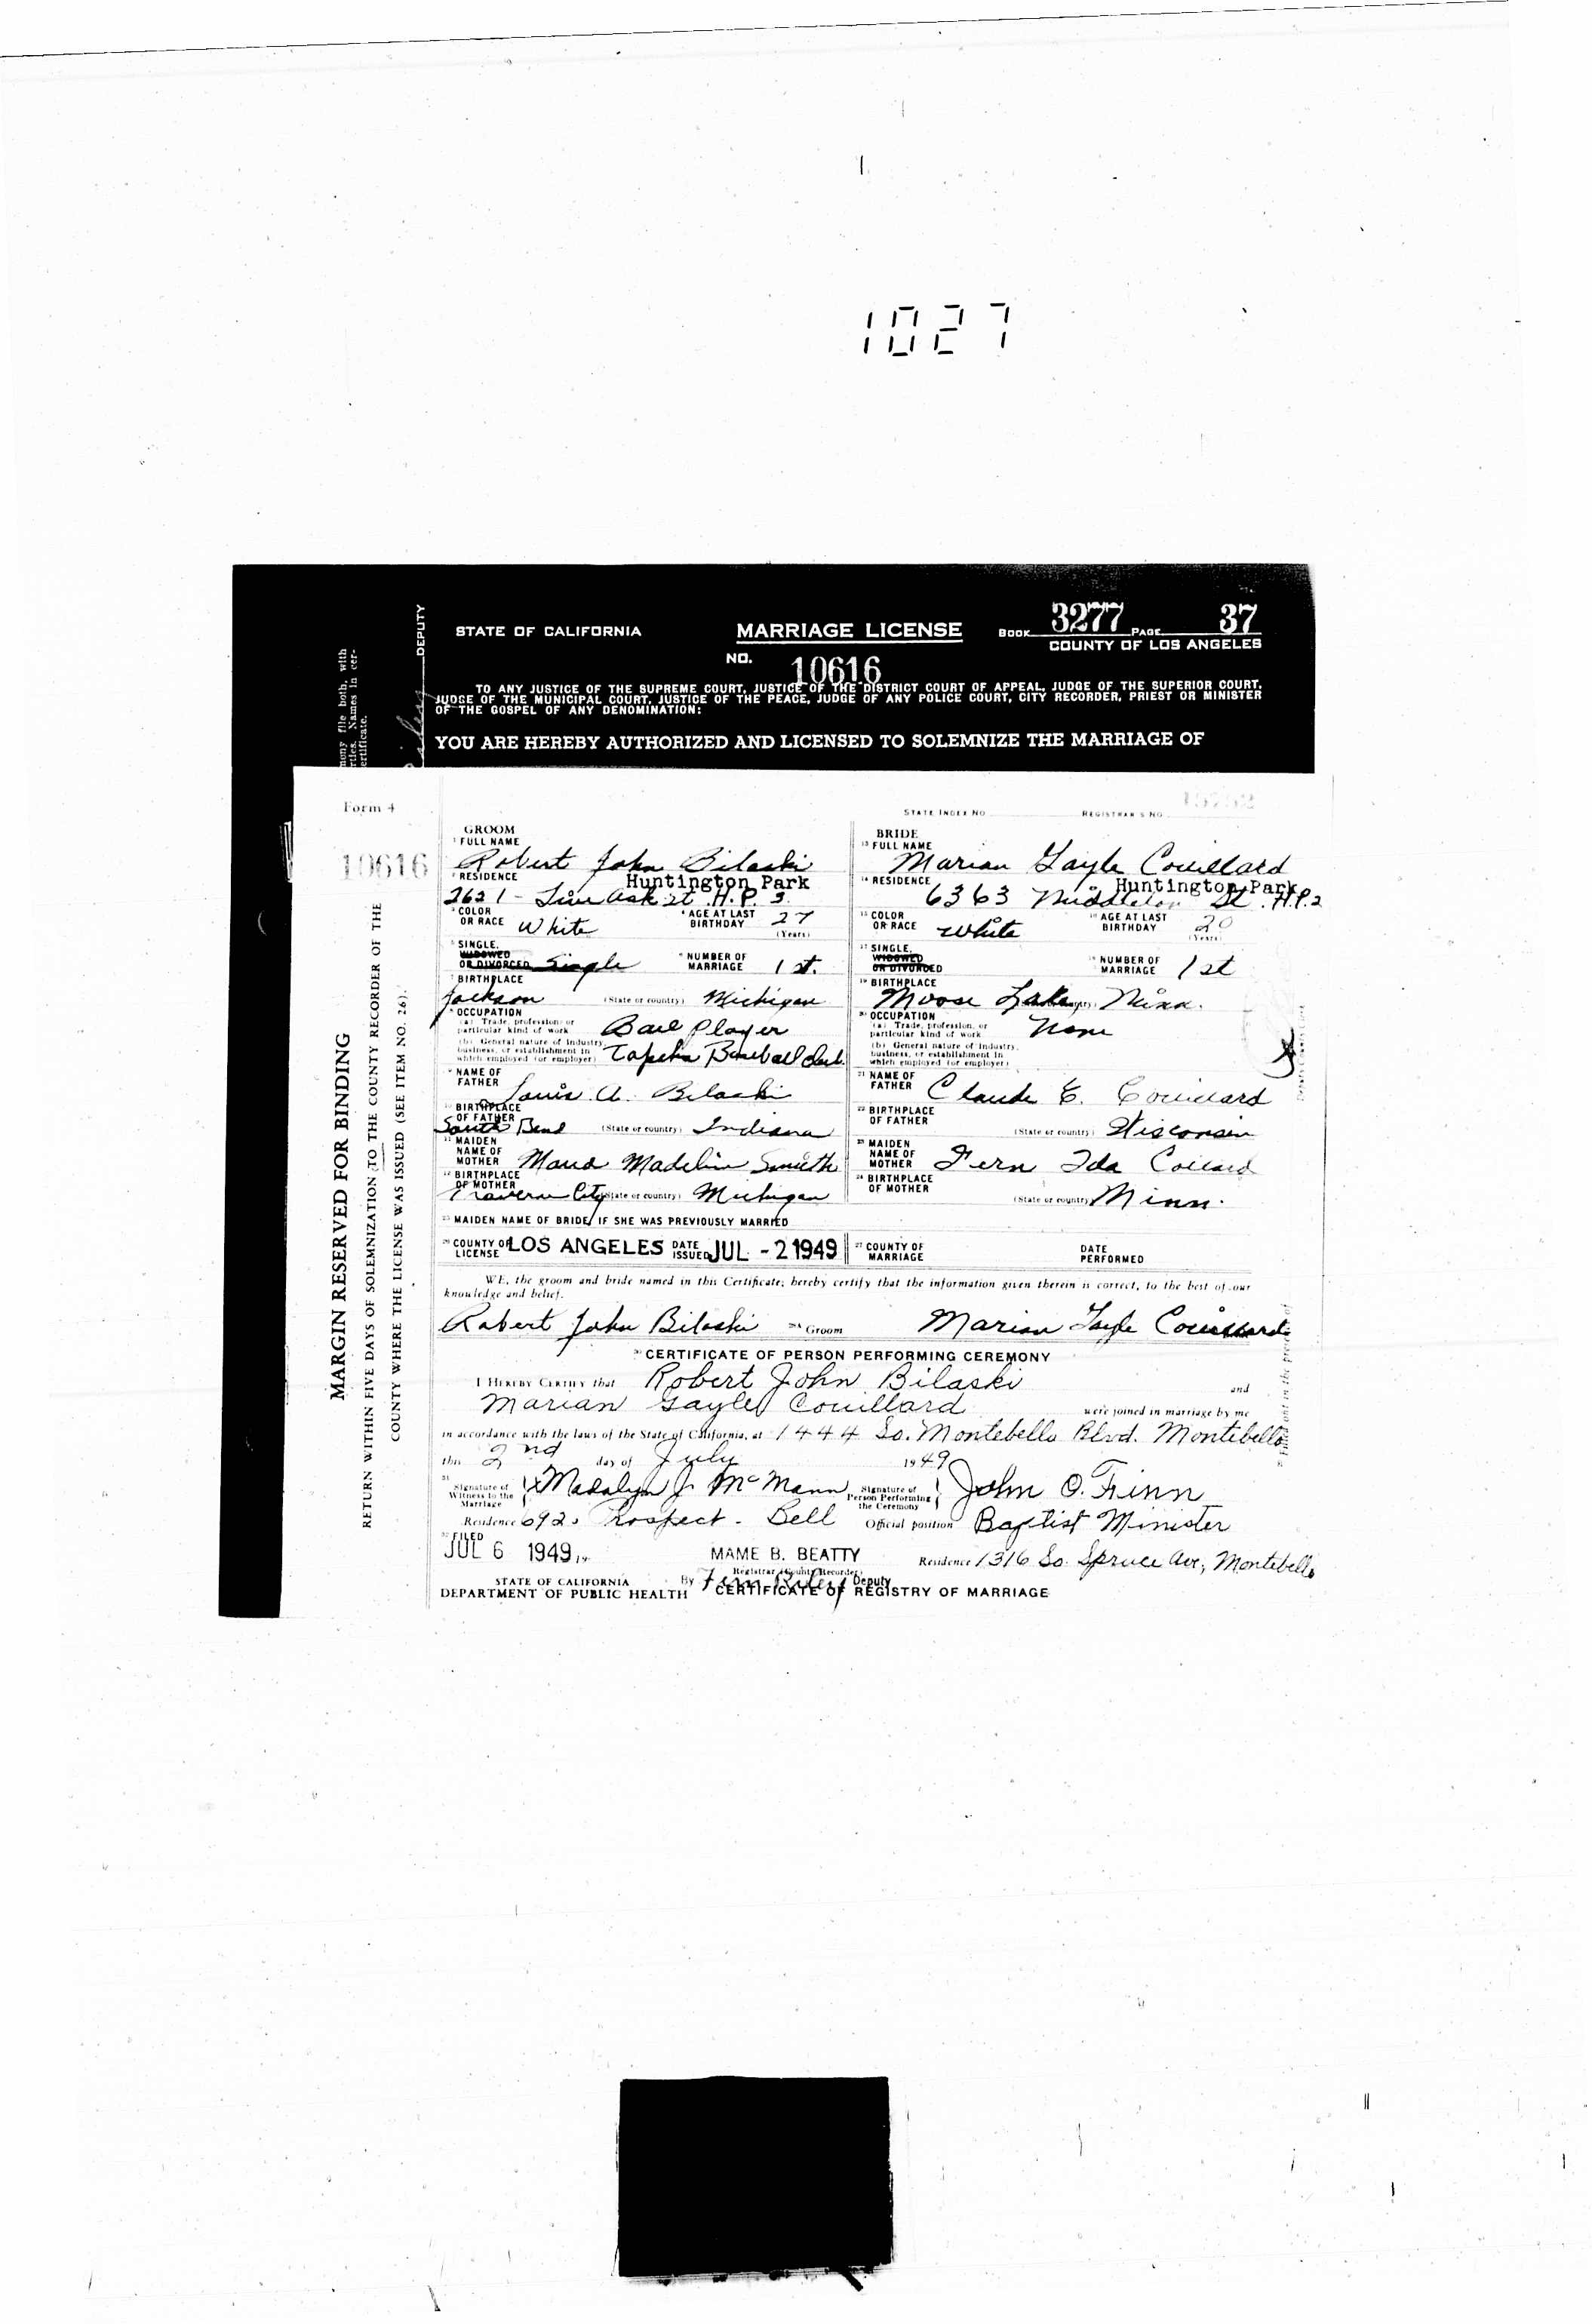 1027
DEPUTY
STATE OF CALIFORNIA
MARRIAGE LICENSE
BOOK 3277 PAGE 37
COUNTY OF LOS ANGELES
NO. 10616
TO ANY JUSTICE OF THE SUPREME COURT, JUSTICE OF THE DISTRICT COURT OF APPEAL, JUDGE OF THE SUPERIOR COURT,
JUDGE OF THE MUNICIPAL COURT, JUSTICE OF THE PEACE, JUDGE OF ANY POLICE COURT, CITY RECORDER, PRIEST OR MINISTER
OF THE GOSPEL OF ANY DENOMINATION:
YOU ARE HEREBY AUTHORIZED AND LICENSED TO SOLEMNIZE THE MARRIAGE OF
mony file both, with
rties. Names in cer-
ertificate.
Form 4
10616
MARGIN RESERVED FOR BINDING
RETURN WITHIN FIVE DAYS OF SOLEMNIZATION TO THE COUNTY RECORDER OF THE
COUNTY WHERE THE LICENSE WAS ISSUED (SEE ITEM NO. 26).
STATE INDEX NO. REGISTRAR'S NO.
GROOM
1 FULL NAME
Robert John Bilaski
2 RESIDENCE
Huntington Park
2621 - Live Oak St. H.P.
3 COLOR OR RACE White
4 AGE AT LAST BIRTHDAY 27 (Years)
5 SINGLE, WIDOWED OR DIVORCED Single
6 NUMBER OF MARRIAGE 1st.
7 BIRTHPLACE
Jackson (State or country) Michigan
8 OCCUPATION
(a) Trade, profession, or particular kind of work Ball Player
(b) General nature of industry, business, or establishment in which employed (or employer) Topeka Baseball Club
9 NAME OF FATHER Louis A. Bilaski
10 BIRTHPLACE OF FATHER
South Bend (State or country) Indiana
11 MAIDEN NAME OF MOTHER Maud Madeline Smith
12 BIRTHPLACE OF MOTHER
Traverse City (State or country) Michigan
BRIDE
13 FULL NAME
Marian Gayle Couillard
14 RESIDENCE
Huntington Park
6363 Middleton St. H.P.2
15 COLOR OR RACE White
16 AGE AT LAST BIRTHDAY 20 (Years)
17 SINGLE, WIDOWED OR DIVORCED
18 NUMBER OF MARRIAGE 1st
19 BIRTHPLACE
Moose Lake, Minn.
20 OCCUPATION
(a) Trade, profession, or particular kind of work None
(b) General nature of industry, business, or establishment in which employed (or employer)
21 NAME OF FATHER Claude E. Couillard
22 BIRTHPLACE OF FATHER
(State or country) Wisconsin
23 MAIDEN NAME OF MOTHER Fern Ida
24 BIRTHPLACE OF MOTHER
(State or country) Minn.
25 MAIDEN NAME OF BRIDE, IF SHE WAS PREVIOUSLY MARRIED
26 COUNTY OF LICENSE LOS ANGELES DATE ISSUED JUL - 2 1949
27 COUNTY OF MARRIAGE DATE PERFORMED
WE, the groom and bride named in this Certificate, hereby certify that the information given therein is correct, to the best of our
knowledge and belief.
Robert John Bilaski Groom Marian Gayle Couillard
CERTIFICATE OF PERSON PERFORMING CEREMONY
I HEREBY CERTIFY that Robert John Bilaski and
Marian Gayle Couillard were joined in marriage by me
in accordance with the laws of the State of California, at 1444 So. Montebello Blvd. Montebello
this 2nd day of July 1949
Signature of Witness to the Marriage Madalyn J. McMann Signature of Person Performing the Ceremony John O. Finn
Residence Prospect - Bell Official position Baptist Minister
FILED
JUL 6 1949
MAME B. BEATTY
Registrar (County Recorder)
Residence 1316 So. Spruce Ave, Montebello
By Deputy
STATE OF CALIFORNIA
DEPARTMENT OF PUBLIC HEALTH
CERTIFICATE OF REGISTRY OF MARRIAGE